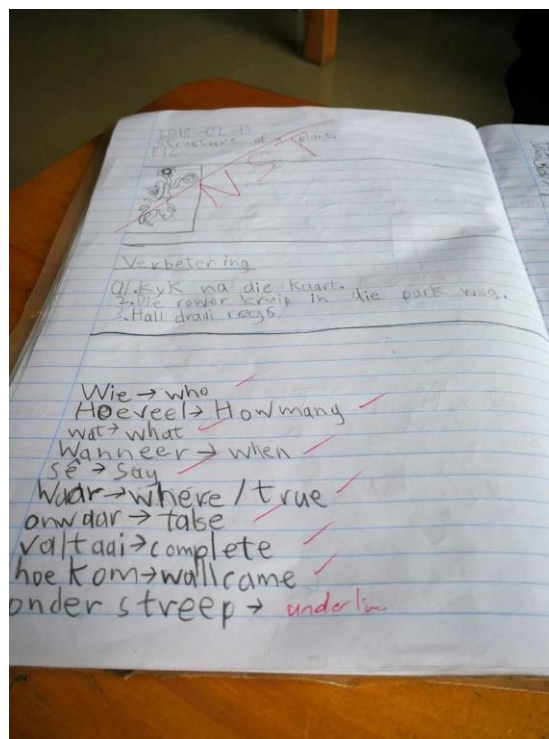 2018-02-13
Structure of a plant.
P12
NST
Verbetering
Q1. Kyk na die kaart.
2. Die rower kruip in die park weg.
3. Hall draai regs
Wie → who
Hoeveel → Howmany
wat → what
Wanneer → when
sê → say
Waar → where / true
onwaar → false
valtaai → complete
hoe kom → wallcame
onder streep → underlin